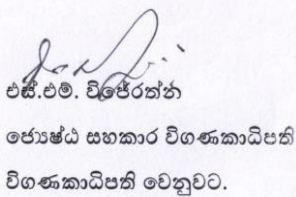 එස්.එම්. විජේරත්න
ජ්‍යෙෂ්ඨ සහකාර විගණකාධිපති
විගණකාධිපති වෙනුවට.